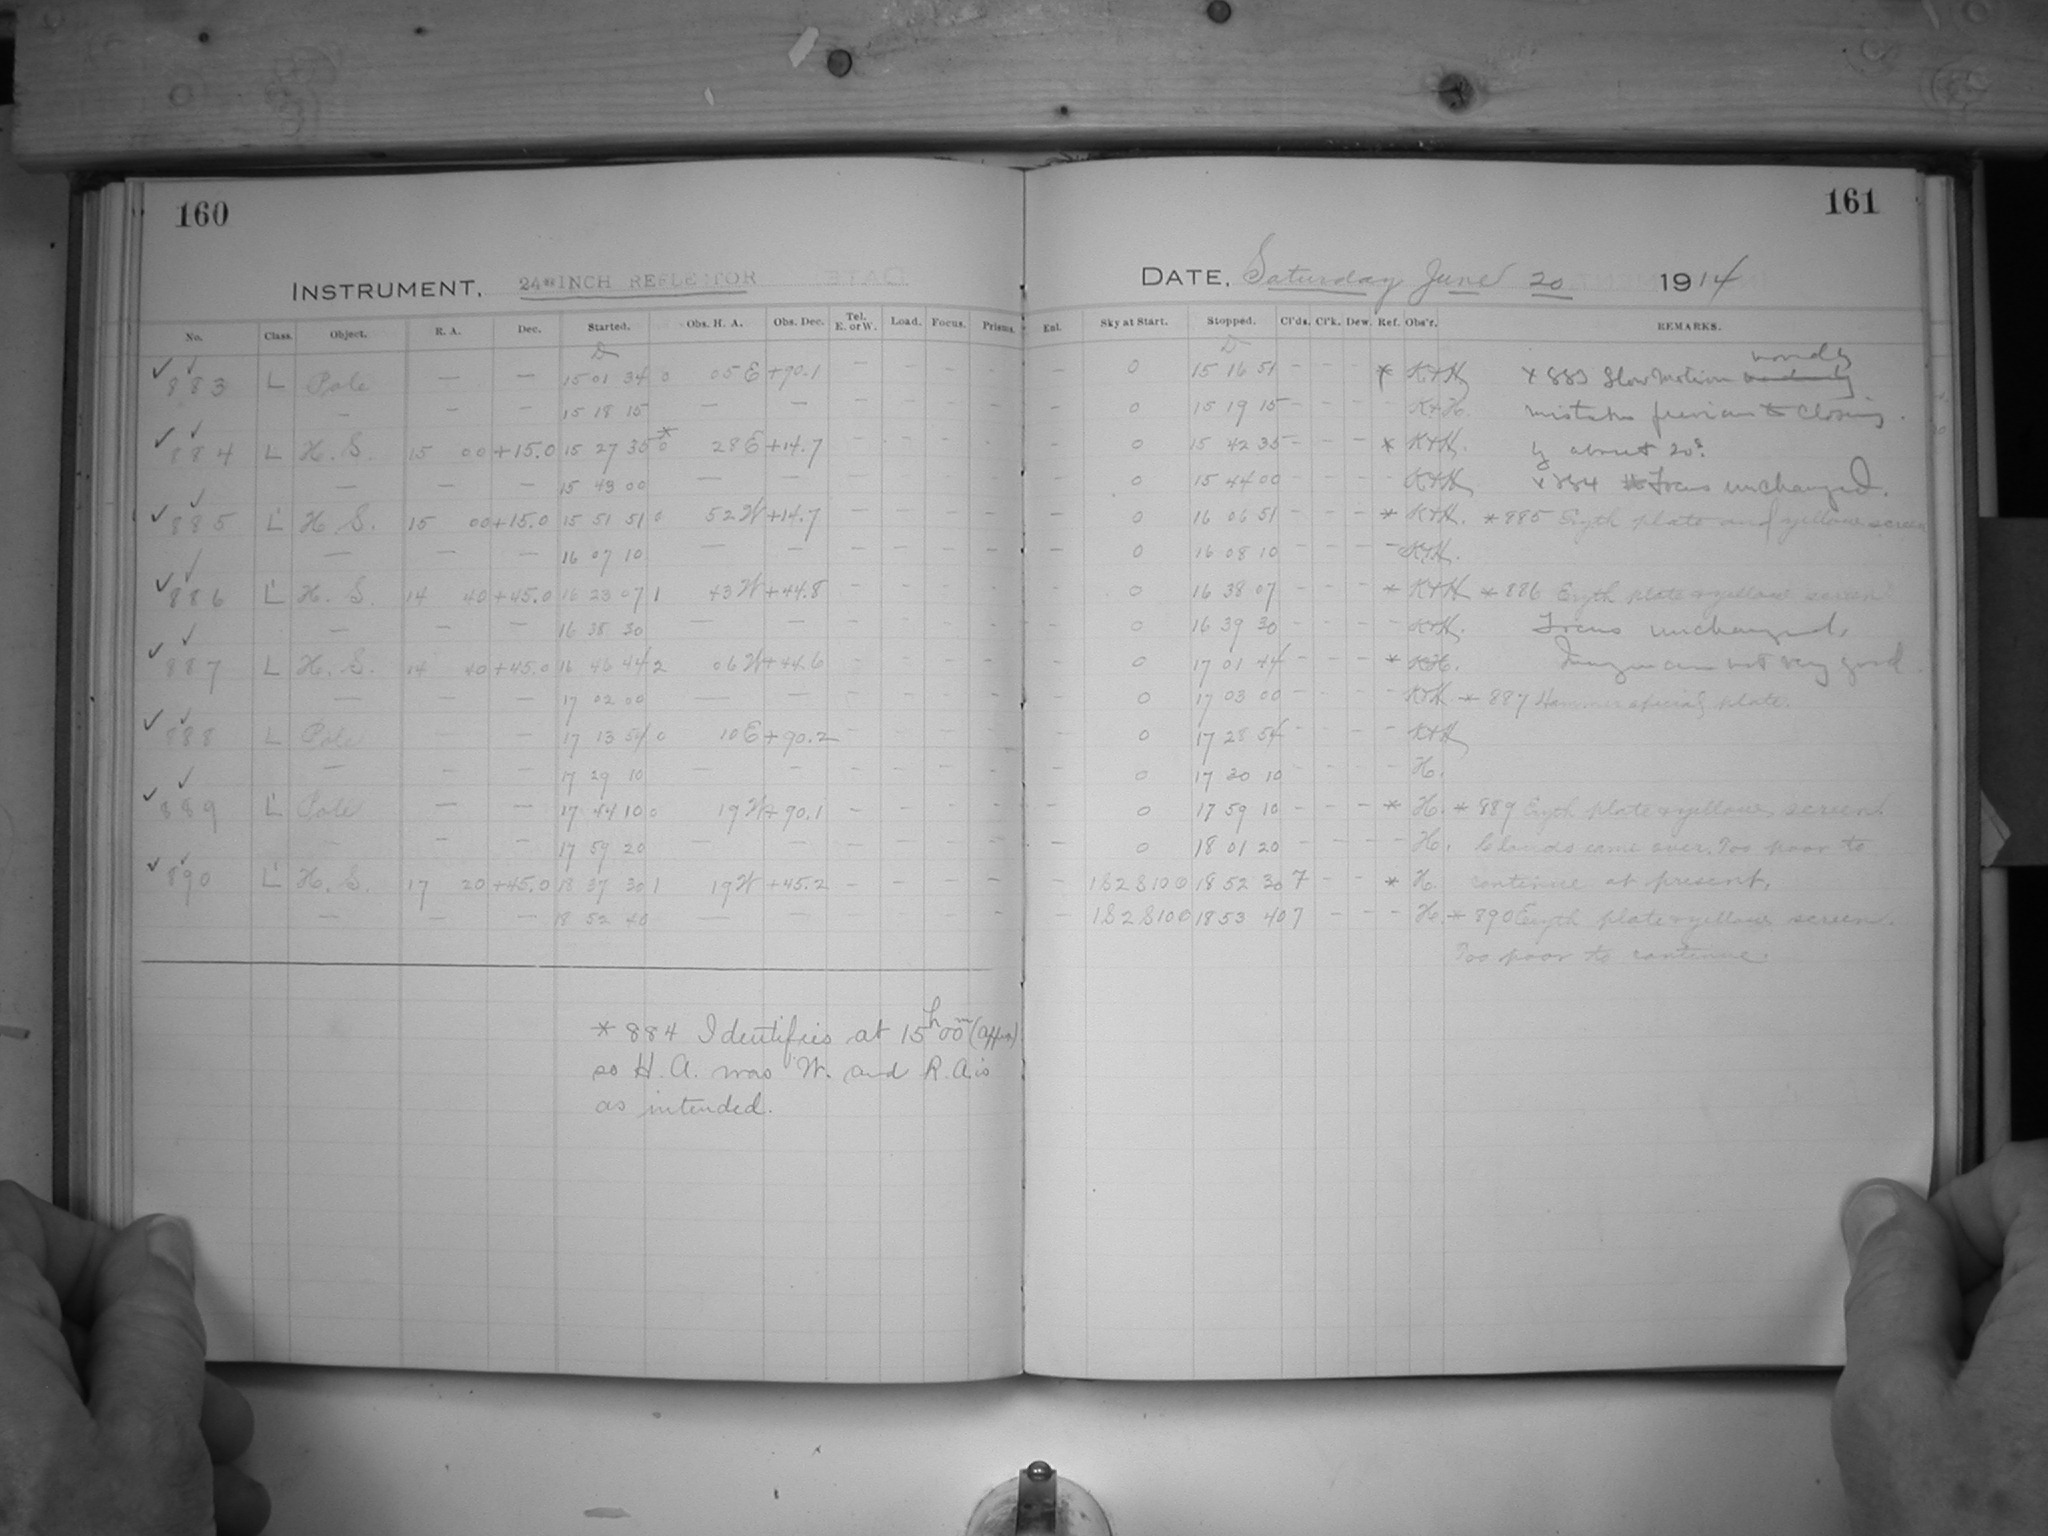 160
INSTRUMENT, 24-INCH REFLECTOR
No. Class. Object. R. A. Dec. Started. Obs. H. A. Obs. Dec. Tel. E. or W. Load. Focus. Prisms.
883 L Pole — — 15 01 34 0 05 E +90.1 —
— — — 15 18 15 — —
884 L H. S. 15 00 +15.0 15 27 35 * 0 28 E +14.7
— — — 15 43 00 — —
885 L' H. S. 15 00 +15.0 15 51 51 0 52 W +14.7
— — — 16 07 10 — —
886 L' H. S. 14 40 +45.0 16 23 07 1 43 W +44.8
— — — 16 38 30 — —
887 L H. S. 14 40 +45.0 16 46 44 2 06 W +44.6
— — — 17 02 00 — —
888 L Pole — — 17 13 54 0 10 E +90.2
— — — 17 29 10 — —
889 L' Pole — — 17 44 10 0 19 W +90.1
— — — 17 59 20 — —
890 L' H. S. 17 20 +45.0 18 37 30 1 19 W +45.2
— — — 18 52 40 — —
* 884 Identifies at 15h 00m (approx)
so H. A. was W. and R. A. is
as intended.
161
DATE, Saturday June 20 1914
Ent. Sky at Start. Stopped. Cl'ds. Cl'k. Dew. Ref. Obs'r. REMARKS.
— 0 15 16 51 — — — * K+H * 883 Slow motion
— 0 15 19 15 — — — K+H. mistake previous to closing.
— 0 15 42 35 — — — * K+H. by about 20s.
— 0 15 44 00 K+H * 884 Focus unchanged.
— 0 16 06 51 — — — * K+H. * 885 Eryth plate and yellow screen
— 0 16 08 10 — — — — K+H.
— 0 16 38 07 — — — * K+H * 886 Eryth plate & yellow screen
— 0 16 39 30 — — — — K+H. Focus unchanged.
— 0 17 01 44 — — — * K+H. not very good
— 0 17 03 00 — — — — K+H * 887 Hammer special plate.
— 0 17 28 54 — — — — K+H
— 0 17 30 10 — — — — H.
— 0 17 59 10 — — — * H. * 889 Eryth plate & yellow screen.
— 0 18 01 20 — — — — H. Clouds came over. Too poor to
— 1S2S100 18 52 30 7 — — * H. continue at present.
— 1S2S100 18 53 40 7 — — — H. * 890 Eryth plate & yellow screen.
Too poor to continue.